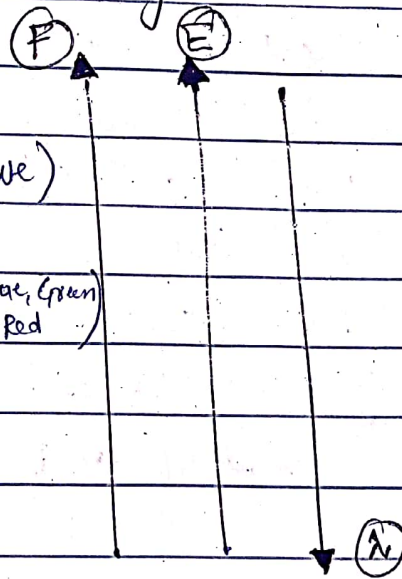 F E
ve)
Green)
Red
λ